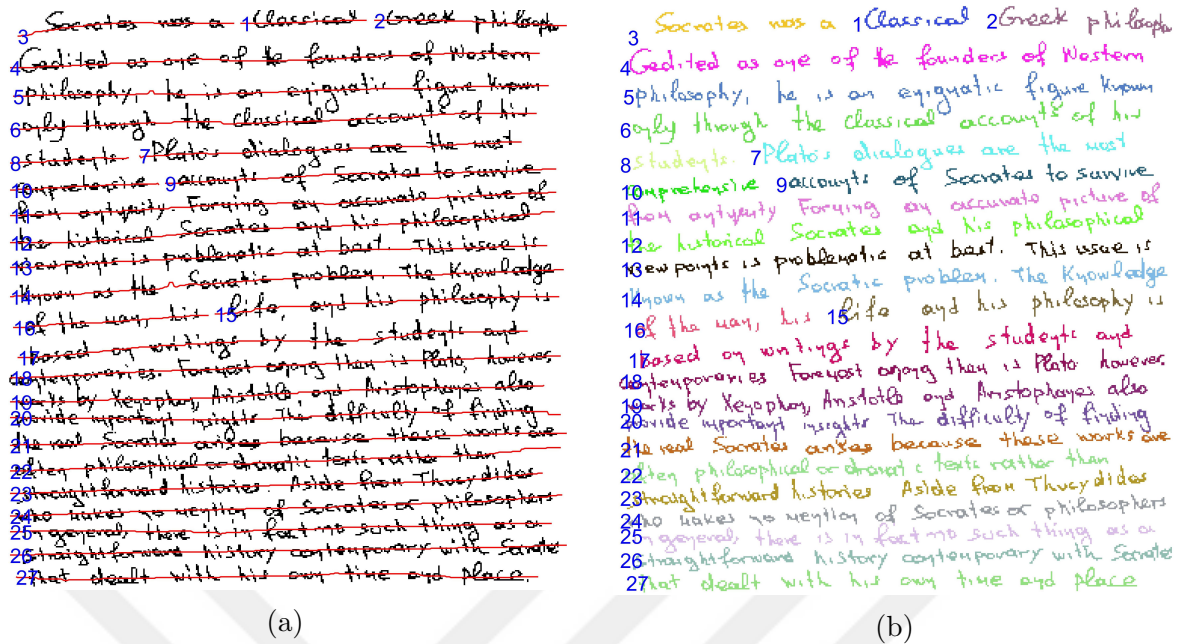 3 Socrates was a 1 Classical 2 Greek philosophe
4 Credited as one of the founders of Western
5 philosophy, he is an enigmatic figure known
6 only through the classical accounts of his
8 students. 7 Plato's dialogues are the most
10 omprehensive 9 accounts of Socrates to survive
11 from antiquity Forming an accurate picture of
12 the historical Socrates and his philosophical
13 viewpoints is problematic at best. This issue is
14 known as the Socratic problem. The knowledge
16 of the man, his 15 life, and his philosophy is
17 based on writings by the students and
18 ontemporaries. Foremost among them is Plato, however.
19 works by Xenophon, Aristotle and Aristophanes also
20 provide important insights The difficulty of finding
21 the real Socrates arises because these works are
22 often philosophical or dramatic texts rather than
23 straightforward histories. Aside from Thucydides
24 who makes no mention of Socrates or philosophers
25 in general, there is in fact no such thing as a
26 straightforward history contemporary with Socrates
27 that dealt with his own time and place.
(a)
3 Socrates was a 1 Classical 2 Greek philosophe
4 Credited as one of the founders of Western
5 philosophy, he is an enigmatic figure known
6 only through the classical accounts of his
8 students. 7 Plato's dialogues are the most
10 omprehensive 9 accounts of Socrates to survive
11 from antiquity Forming an accurate picture of
12 the historical Socrates and his philosophical
13 viewpoints is problematic at best. This issue is
14 known as the Socratic problem. The knowledge
16 of the man, his 15 life and his philosophy is
17 based on writings by the students and
18 ontemporaries Foremost among them is Plato however.
19 works by Xenophon, Aristotle and Aristophanes also
20 provide important insights The difficulty of finding
21 the real Socrates arises because these works are
22 often philosophical or dramatic texts rather than
23 straightforward histories Aside from Thucydides
24 who makes no mention of Socrates or philosophers
25 in general, there is in fact no such thing as a
26 straightforward history contemporary with Socrates
27 that dealt with his own time and place
(b)